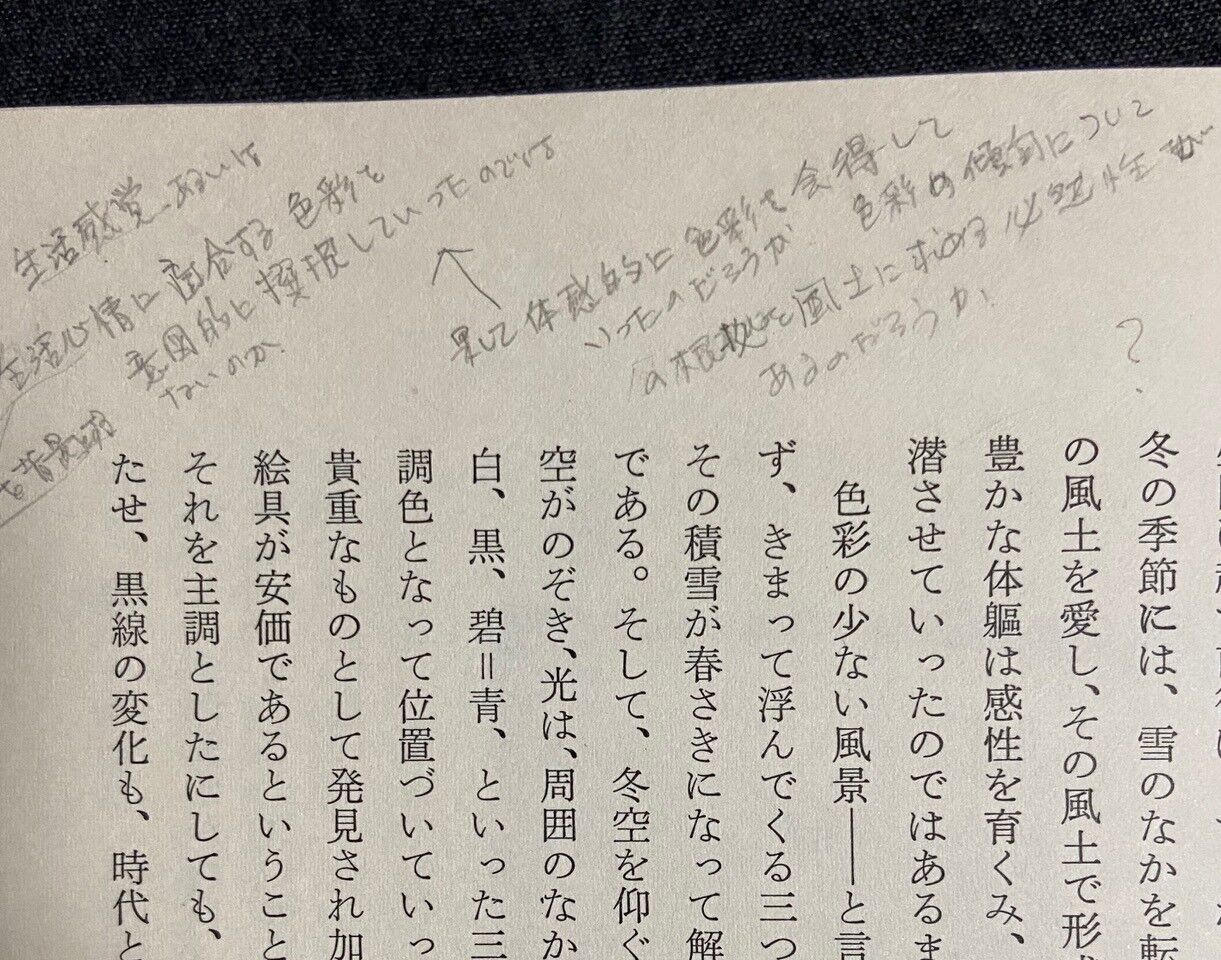 生活感覚、あるいは
生活心情に適合する色彩を
意図的に摂取していったのでは
ないのか
を背景とする
果して体感的に色彩を会得して
いったのだろうか
色彩の傾向について
の根拠を風土に求める必然性が
あるのだろうか、
?
冬の季節には、雪のなかを転
の風土を愛し、その風土で形
豊かな体軀は感性を育くみ、
潜させていったのではあるま
色彩の少ない風景――と言
ず、きまって浮んでくる三つ
その積雪が春さきになって解
である。そして、冬空を仰ぐ
空がのぞき、光は、周囲のなか
白、黒、碧＝青、といった三
調色となって位置づいていっ
貴重なものとして発見され加
絵具が安価であるということ
それを主調としたにしても、
たせ、黒線の変化も、時代と